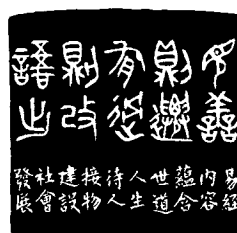 見善
則遷
有過
則改
語出
易經
內容
蘊含
世道
人生
待人
接物
建設
社會
發展